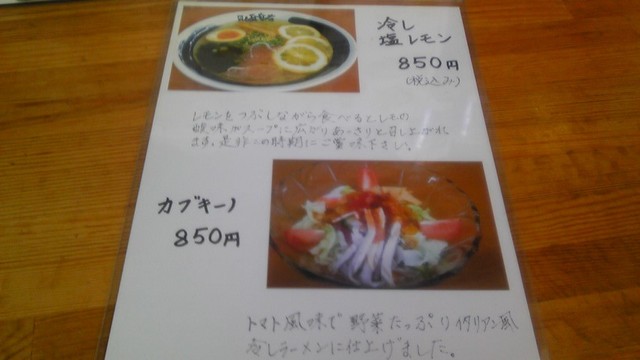 冷し
塩レモン
850円
(税込み)
レモンをつぶしながら食べるとレモンの
酸味がスープに広がりあっさりと召し上がれ
ます。是非この時期にご賞味下さい。
カブキーノ
850円
トマト風味で野菜たっぷりイタリアン風
冷しラーメンに仕上げました。